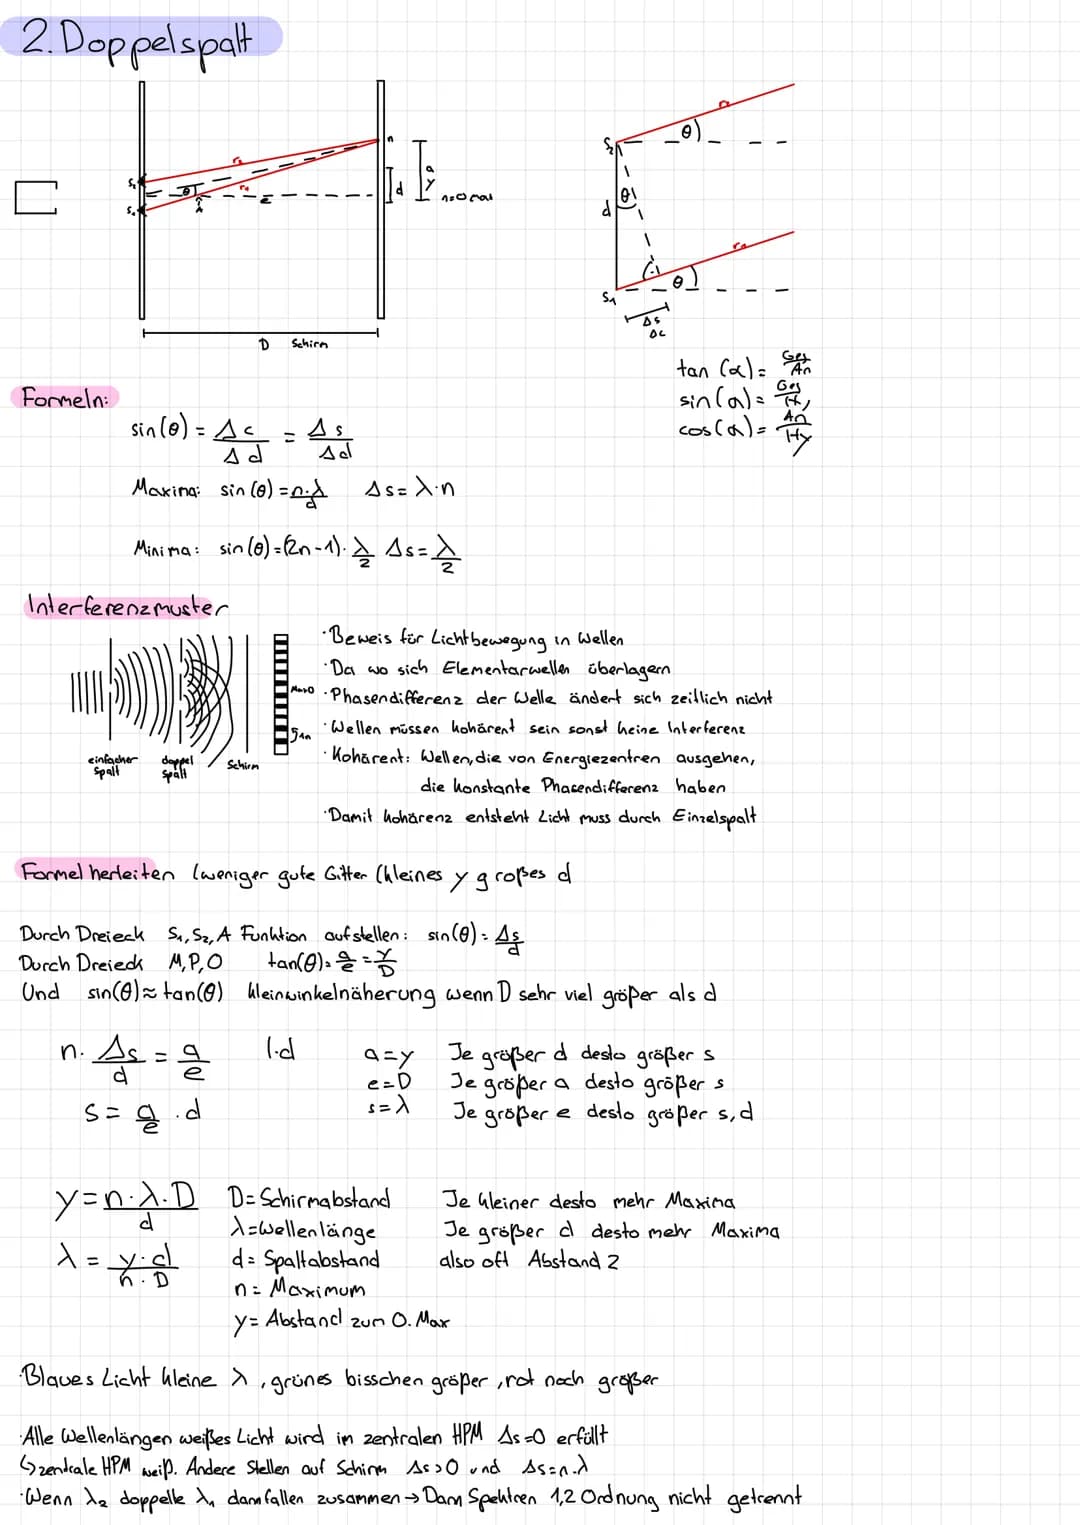 2. Doppelspalt
S₂
S₁
r₂
r₁
θ
A
e
n
d
a
y
n=0 max
D Schirm
S₂
r₂
θ
d
θ
r₁
S₁
θ
Δs
tan (α) = Geg/An
sin (α) = Geg/Hy
cos (α) = An/Hy
Formeln:
sin(θ) = Δc/Δd = Δs/Δd
Maxima: sin (θ) = n·λ/d Δs = λ·n
Minima: sin(θ) = (2n-1)·λ/2 Δs = λ/2
Interferenzmuster
·Beweis für Lichtbewegung in Wellen
·Da wo sich Elementarwellen überlagern
Max0 ·Phasendifferenz der Welle ändert sich zeitlich nicht
·Wellen müssen kohärent sein sonst keine Interferenz
einfacher Spalt
doppel spalt
Schirm
·Kohärent: Wellen, die von Energiezentren ausgehen,
die konstante Phasendifferenz haben
·Damit kohärenz entsteht Licht muss durch Einzelspalt
Formel herleiten (weniger gute Gitter (kleines y großes d
Durch Dreieck S₁, S₂, A Funktion aufstellen: sin(θ) = Δs/d
Durch Dreieck M, P, O tan(θ) = a/e = y/D
Und sin(θ) ≈ tan(θ) kleinwinkelnäherung wenn D sehr viel größer als d
n · Δs/d = a/e |·d
a=y Je größer d desto größer s
e=D Je größer a desto größer s
s = a/e · d
s=λ Je größer e desto größer s, d
y = n·λ·D/d
D = Schirmabstand Je kleiner desto mehr Maxima
λ = Wellenlänge Je größer d desto mehr Maxima
λ = y·d/n·D
d = Spaltabstand also oft Abstand 2
n = Maximum
y = Abstand zum 0. Max
·Blaues Licht kleine λ, grünes bisschen größer, rot noch größer
·Alle Wellenlängen weißes Licht wird im zentralen HPM Δs=0 erfüllt
↳ zentrale HPM weiß. Andere Stellen auf Schirm Δs>0 und Δs=n·λ
·Wenn λ₂ doppelte λ₁ dann fallen zusammen → Dann Spektren 1,2 Ordnung nicht getrennt